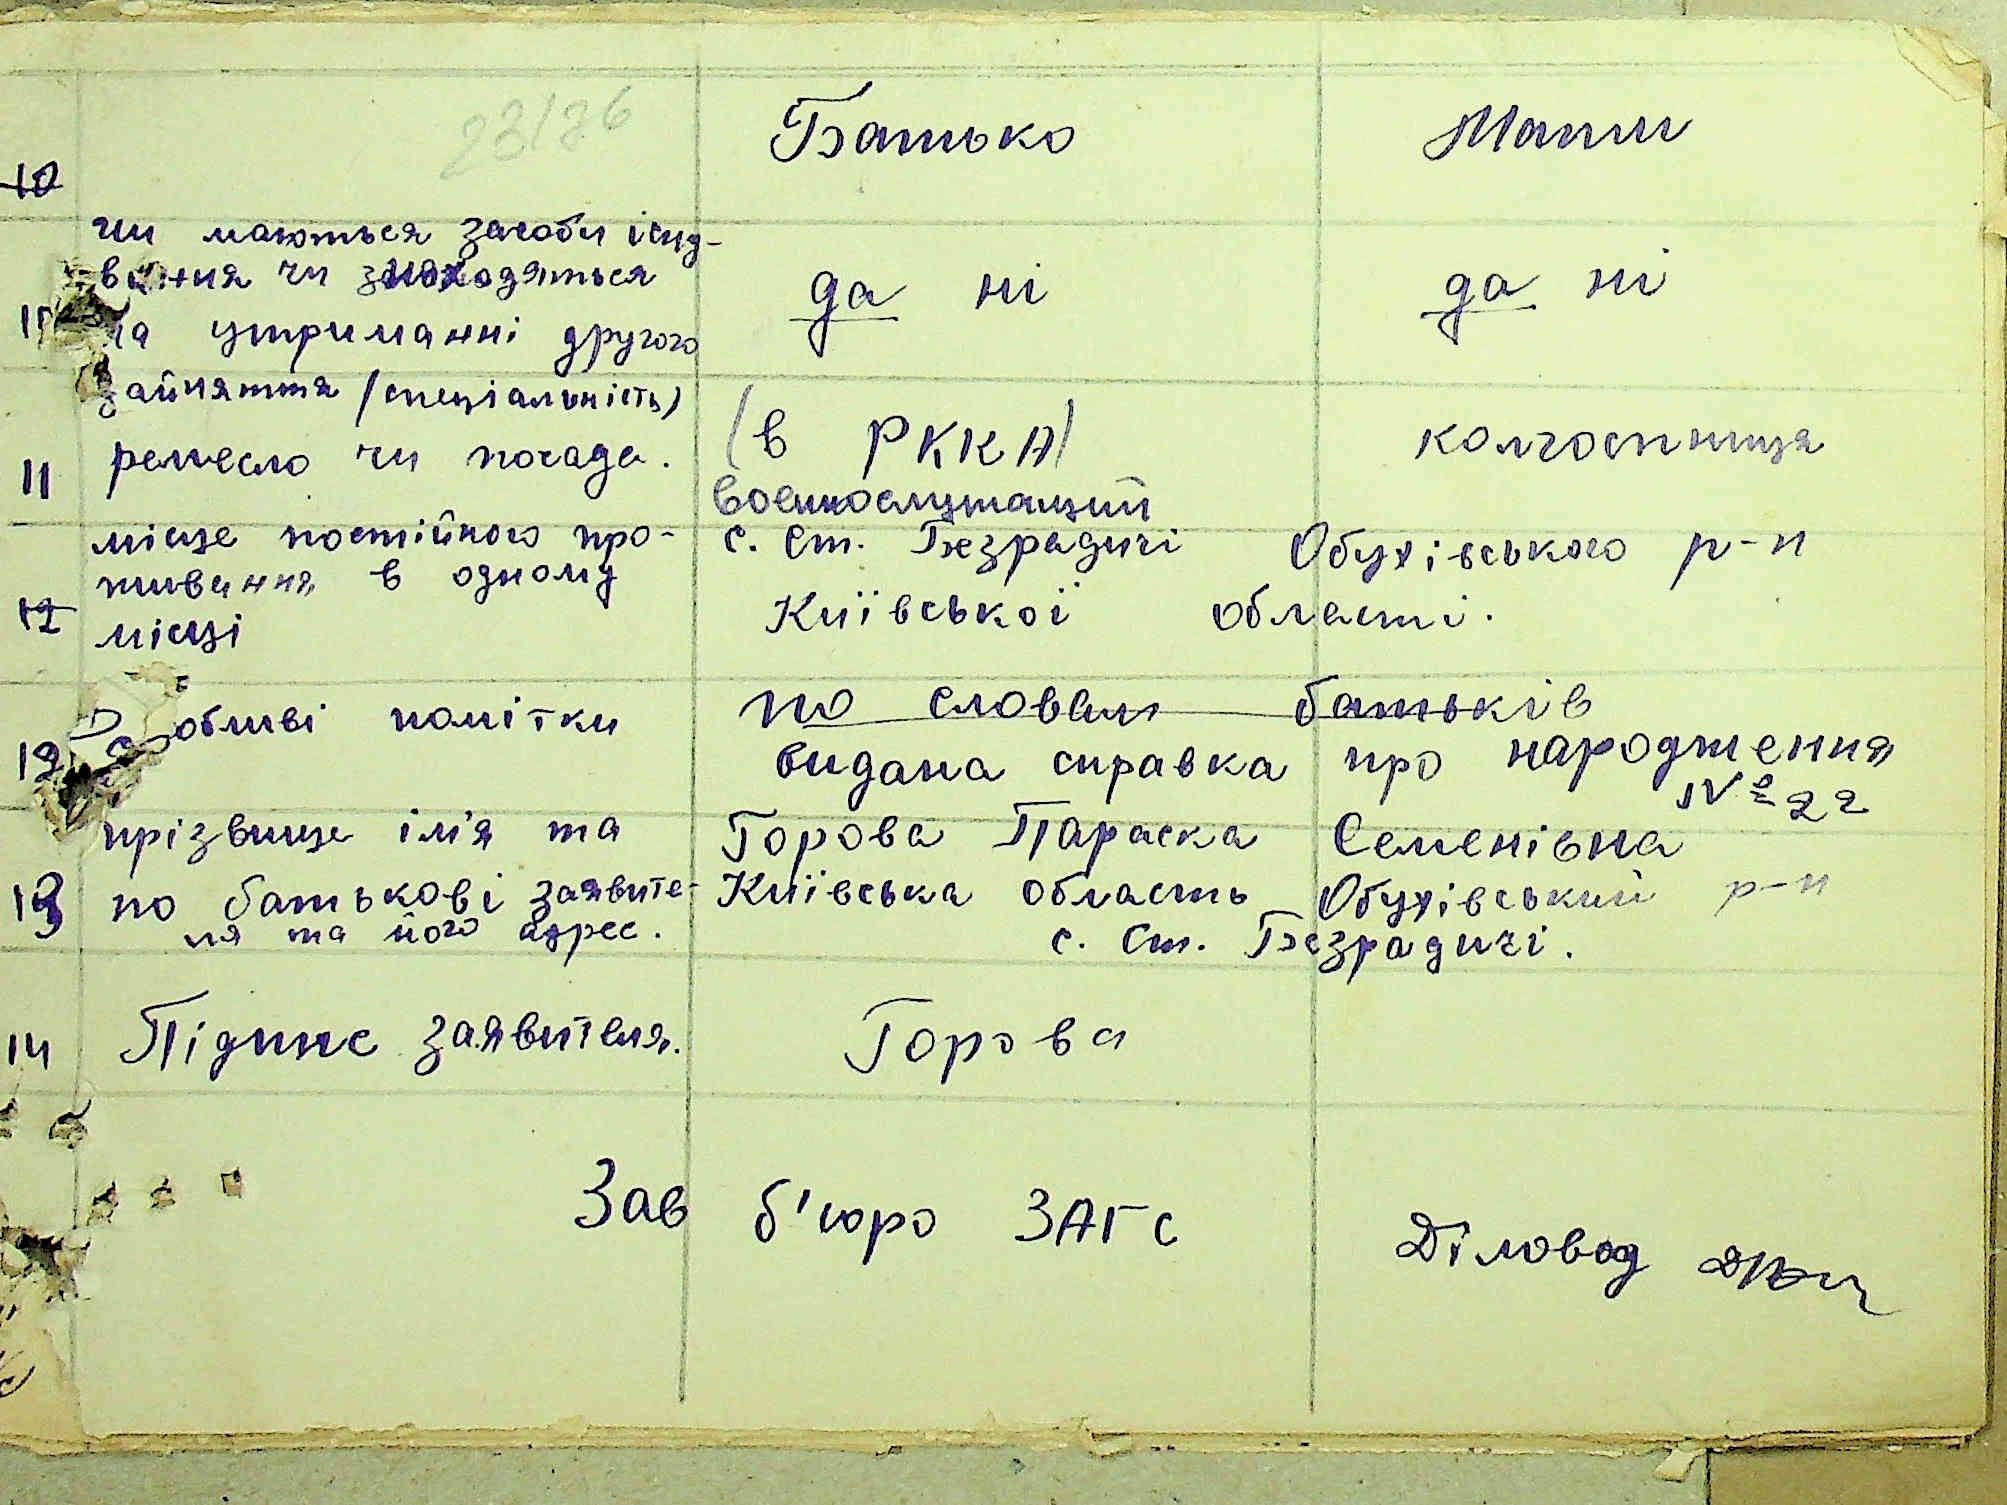 23/76
Батько Мати
10
чи маються засоби існу-
вання чи знаходяться
да ні да ні
на утриманні другого
зайняття (спеціальність)
(в РККА)
11 ремесло чи посада. колгоспниця
военнослужащий
місце постійного про- с. Ст. Безрадичі Обухівського р-н
живання в одному
12 Київської області.
місці
Особливі помітки по словам батьків
видана справка про народження
№ 22
прізвище ім'я та Горова Параска Семенівна
13 по батькові заявите- Київська область Обухівський р-н
ля та його адрес. с. Ст. Безрадичі.
14 Підпис заявителя. Горова
Зав б'юро ЗАГС Діловод